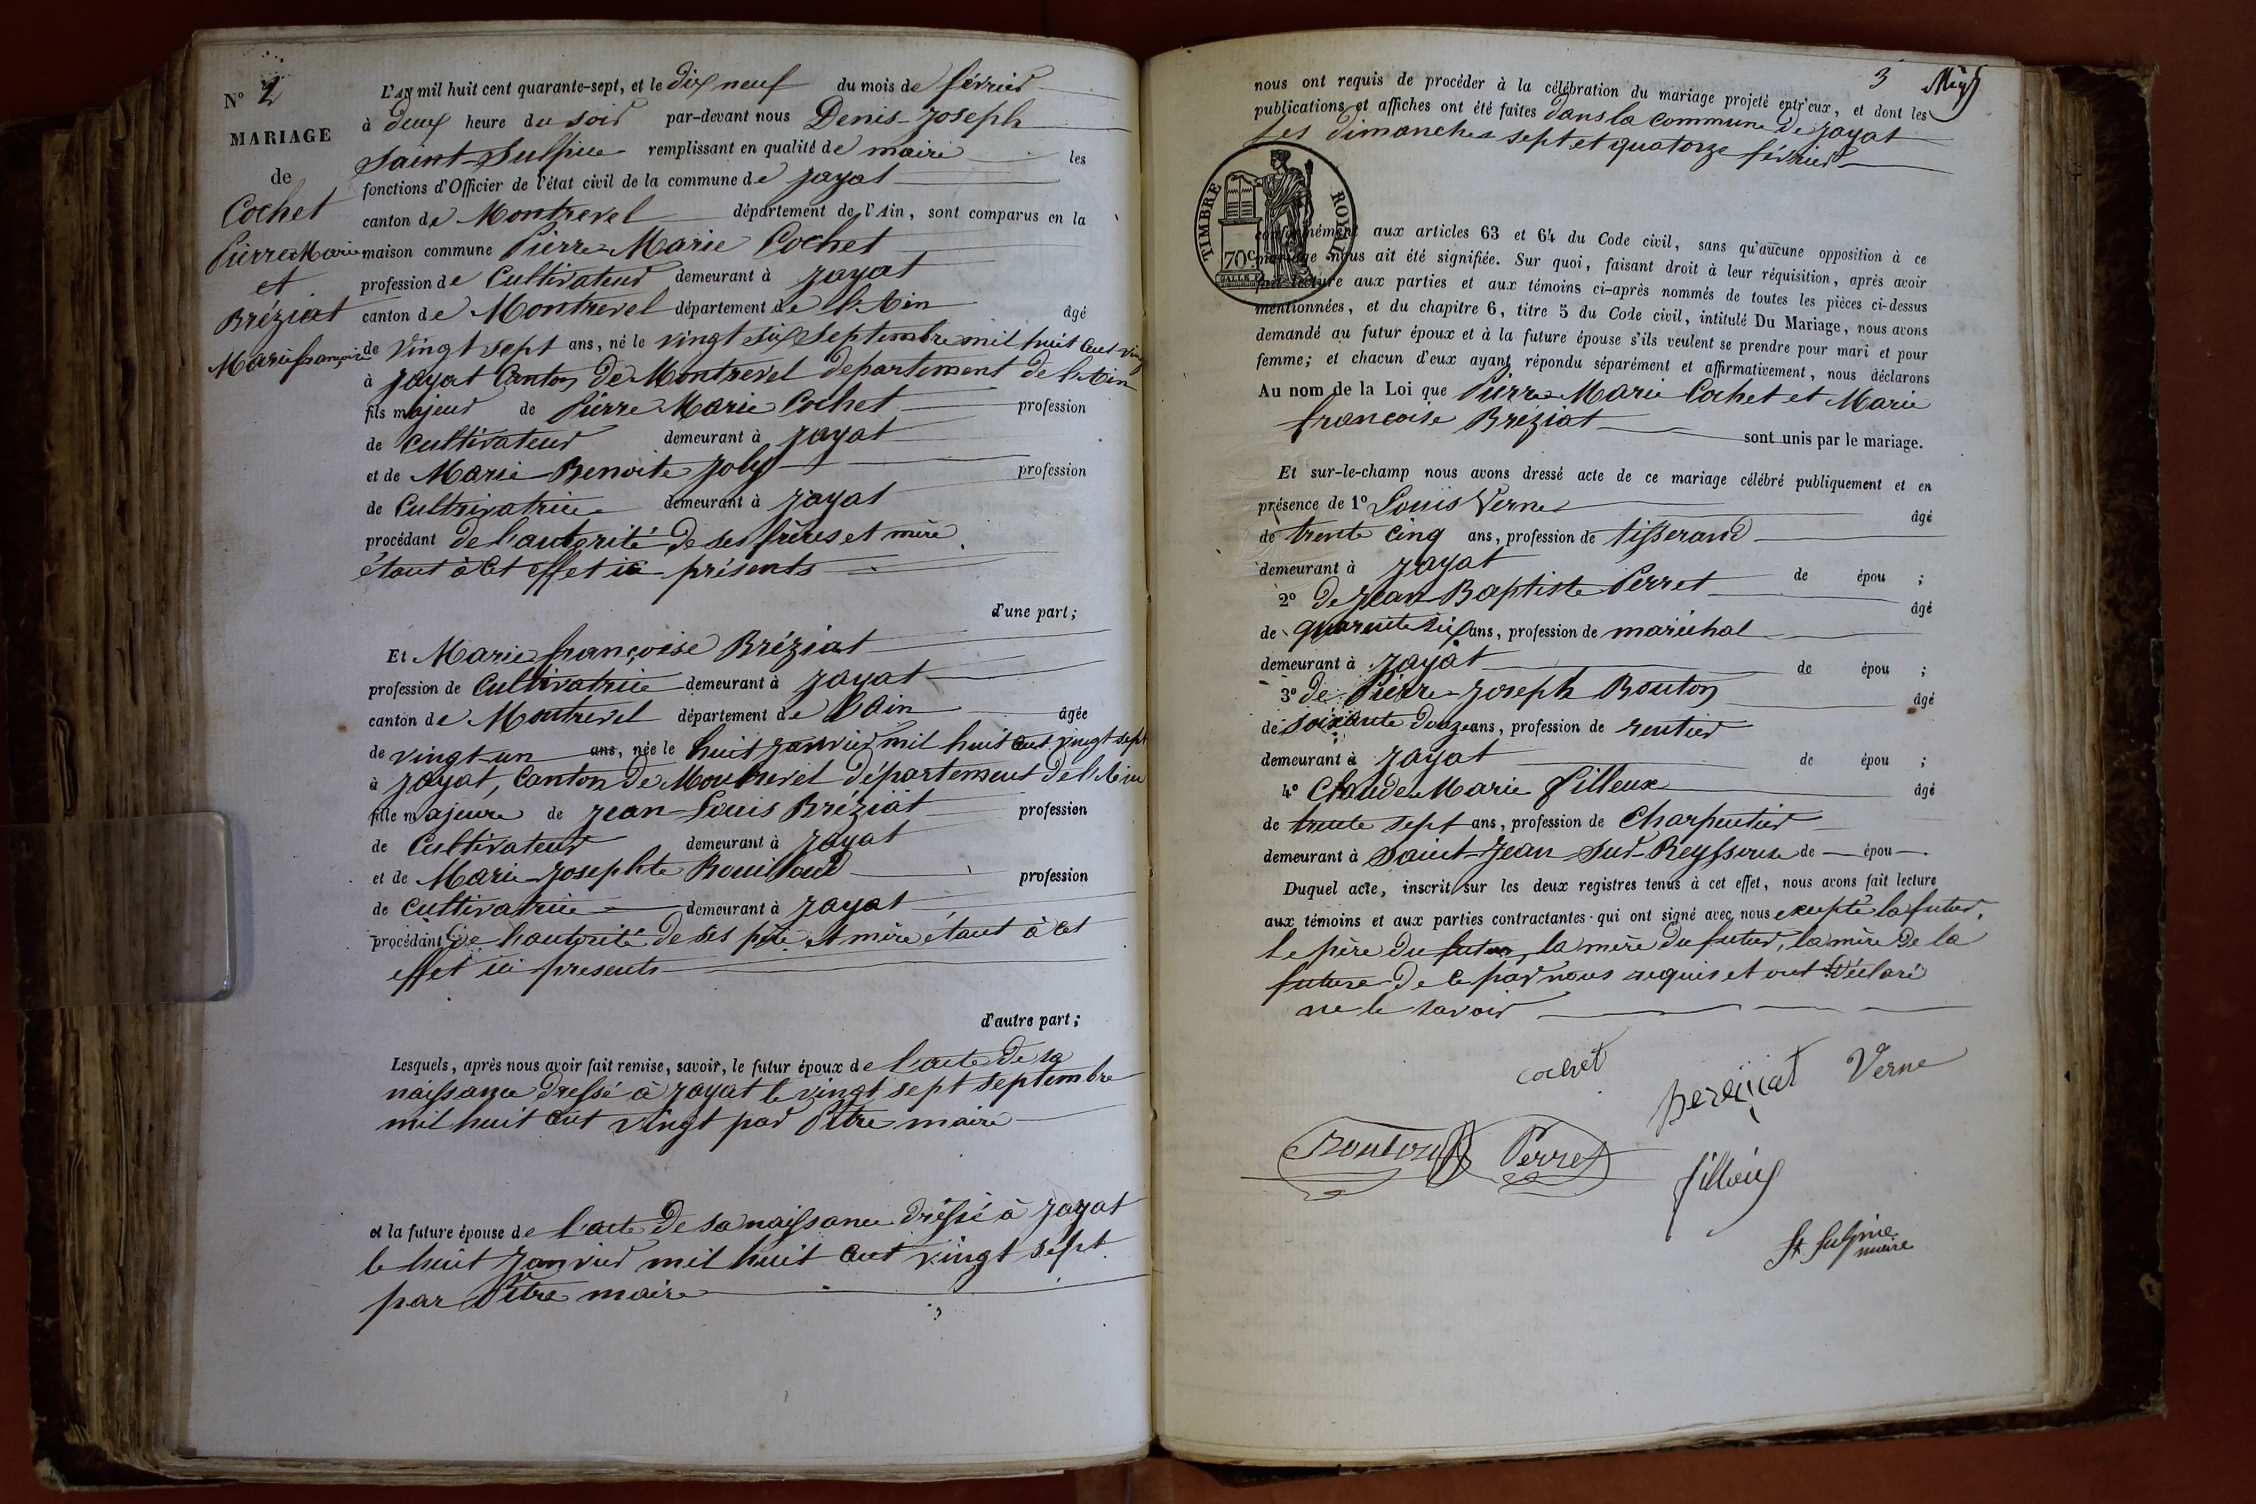 N° 2
MARIAGE
de
Cochet
Pierre Marie
et
Bréziat
Marie françoise
L'AN mil huit cent quarante-sept, et le dix neuf du mois de février
à deux heure du soir par-devant nous Denis Joseph
Saint-Sulpice remplissant en qualité de maire les
fonctions d'Officier de l'état civil de la commune de Jayat
canton de Montrevel département de l'Ain, sont comparus en la
maison commune Pierre Marie Cochet
profession de Cultivateur demeurant à Jayat
canton de Montrevel département de l'Ain âgé
de vingt sept ans, né le vingt six Septembre mil huit cent vingt
à Jayat Canton de Montrevel département de l'Ain
fils majeur de Pierre Marie Cochet profession
de cultivateur demeurant à Jayat
et de Marie Benoite Joly profession
de Cultivatrice demeurant à Jayat
procédant de l'autorité de ses frères et mère
étant à cet effet ici présents
d'une part;
Et Marie françoise Bréziat
profession de Cultivatrice demeurant à Jayat
canton de Montrevel département de l'Ain âgée
de vingt un ans, née le huit janvier mil huit cent vingt sept
à Jayat, Canton de Montrevel département de l'Ain
fille majeure de Jean Louis Bréziat profession
de Cultivateur demeurant à Jayat
et de Marie Josephte Rouilloud profession
de cultivatrice demeurant à Jayat
procédant de l'autorité de ses père et mère étant à cet
effet ici presents
d'autre part;
Lesquels, après nous avoir fait remise, savoir, le futur époux de l'acte de sa
naissance dressé à Jayat le vingt sept septembre
mil huit cent vingt par Pitre maire
et la future épouse de l'acte de sa naissance dressé à Jayat
le huit Janvier mil huit cent vingt sept
par Pitre maire
3
nous ont requis de procéder à la célébration du mariage projeté entr'eux, et dont les
publications et affiches ont été faites dans la commune de Jayat
les dimanches sept et quatorze février
TIMBRE ROYAL
70c
conformément aux articles 63 et 64 du Code civil, sans qu'aucune opposition à ce
mariage nous ait été signifiée. Sur quoi, faisant droit à leur réquisition, après avoir
fait lecture aux parties et aux témoins ci-après nommés de toutes les pièces ci-dessus
mentionnées, et du chapitre 6, titre 5 du Code civil, intitulé Du Mariage, nous avons
demandé au futur époux et à la future épouse s'ils veulent se prendre pour mari et pour
femme; et chacun d'eux ayant répondu séparément et affirmativement, nous déclarons
Au nom de la Loi que Pierre Marie Cochet et Marie
françoise Bréziat sont unis par le mariage.
Et sur-le-champ nous avons dressé acte de ce mariage célébré publiquement et en
présence de 1° Louis Verne âgé
de trente cinq ans, profession de tisserand
demeurant à Jayat de épou ;
2° de Jean Baptiste Perret âgé
de quarente six ans, profession de maréchal
demeurant à Jayat de épou ;
3° de Pierre Joseph Bouton âgé
de soixante douze ans, profession de rentier
demeurant à Jayat de épou ;
4° Claude Marie filleux âgé
de trente sept ans, profession de Charpentier
demeurant à Saint-Jean-Sur-Reyssouse de épou
Duquel acte, inscrit sur les deux registres tenus à cet effet, nous avons fait lecture
aux témoins et aux parties contractantes qui ont signé avec nous excepté la futur,
le père du futur, la mère du futur, la mère de la
future de ce par nous requis et ont déclaré
ne le savoir
cochet
Verne
Bouton Perret
St Sulpice
maire